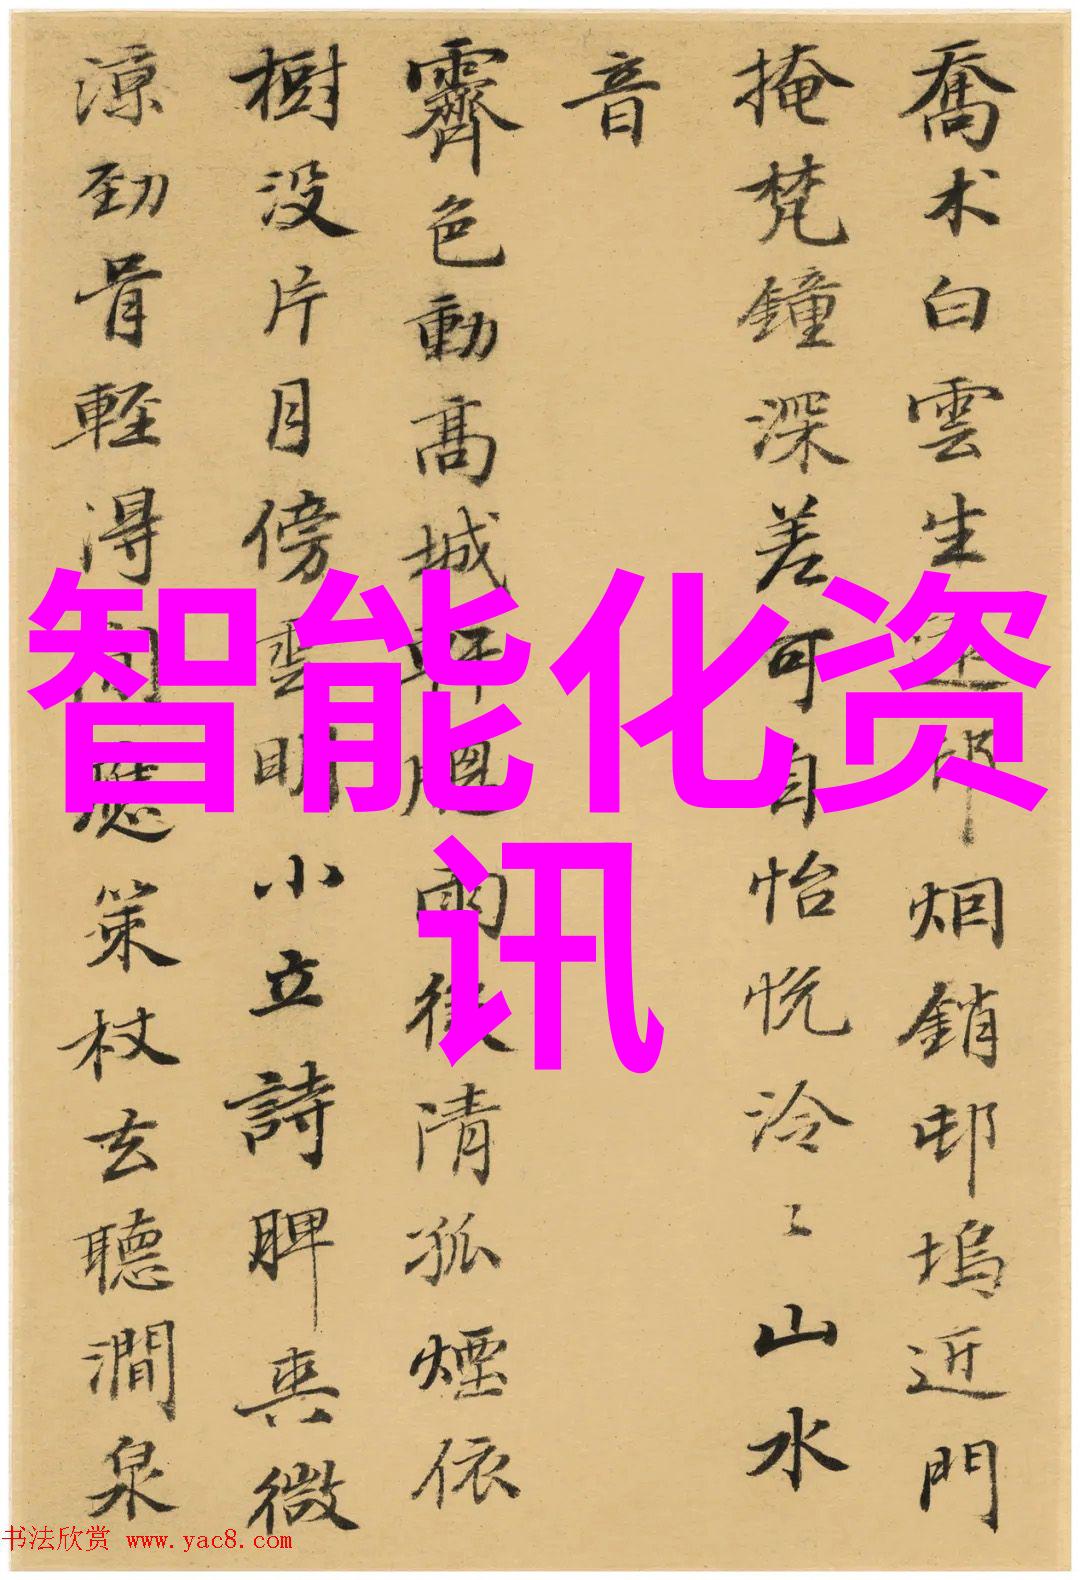 喬木白雲生邨烟銷邨塢近門
掩梵鐘深差可自怡悦泠々山水
音
霽色動高城軒雨後清孤煙依
樹没片月傍雲明小立詩脾爽微
涼勁骨輕得應策杖去聽澗泉
智能化资
讯
书法欣赏 www.yac8.com